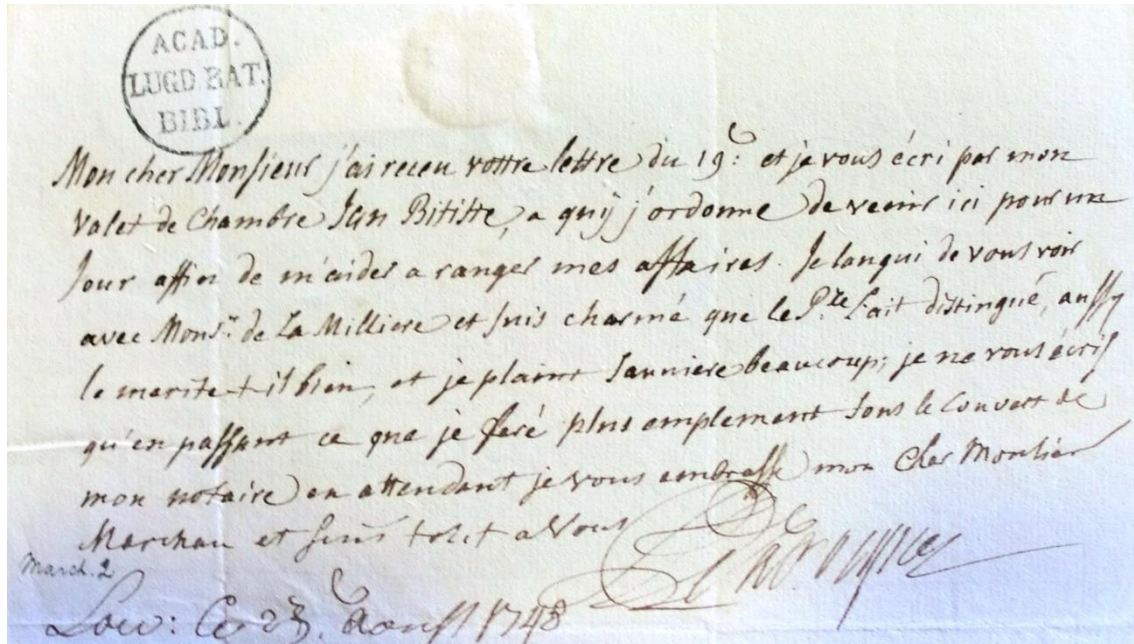 ACAD.
LUGD. BAT.
BIBL.
Mon cher Monsieur j'ai receu vottre lettre du 19: et je vous écri par mon
valet de Chambre Jan Bitiste, a quij j'ordonne de venir ici pour un
Jour affin de m'aider a ranger mes affaires. Je langui de vous voir
avec Mons.r de La Milliere et suis charmé que le P.ce l'ait distingué, aussy
le merite t il bien, et je plaint beaucoup; je ne vous écris
qu'en passant ce que je feré plus emplement sous le couvert de
mon notaire en attendant je vous embrasse mon Cher Monsier
Marchan et suis tout a Vous
March. 2
Low: Ce 23. Aoust 1748